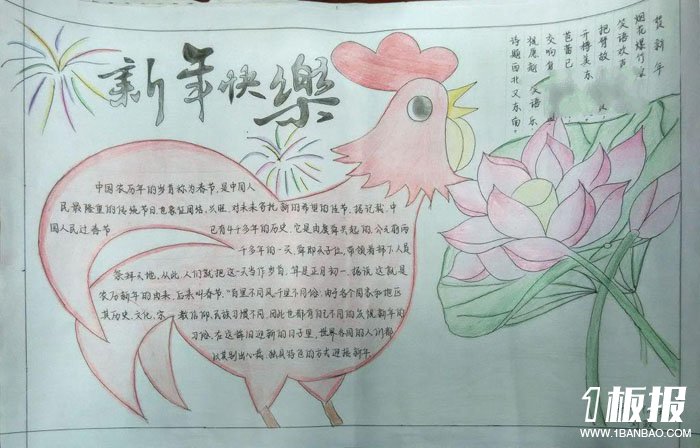 新年快樂
中国农历年的岁首称为春节,是中国人
民最隆重的传统节日也象征团结、兴旺,对未来寄托新的希望的佳节。据记载,中
国人民过春节已有4千多年的历史,它是由虞舜兴起的。公元前两
千多年的一天,舜即天子位,带领着部下人员
祭拜天地。从此,人们就把这一天当作岁首,算是正月初一。据说这就是
农历新年的由来,后来叫春节。“百里不同风千里不同俗,由于各个国家和地区
其历史、文化、宗教信仰、民族习惯不同,因此也都有自己不同的欢度新年的
习俗。在这辞旧迎新的日子里,世界各国的人们都
以其别出心裁、独具特色的方式迎接新年
贺新年
烟花爆竹
笑语欢声
把臂故
开樽美
芭蕾已
交响复
祝愿
诗题西北又东向。
1板报
WWW.1BANBAO.COM